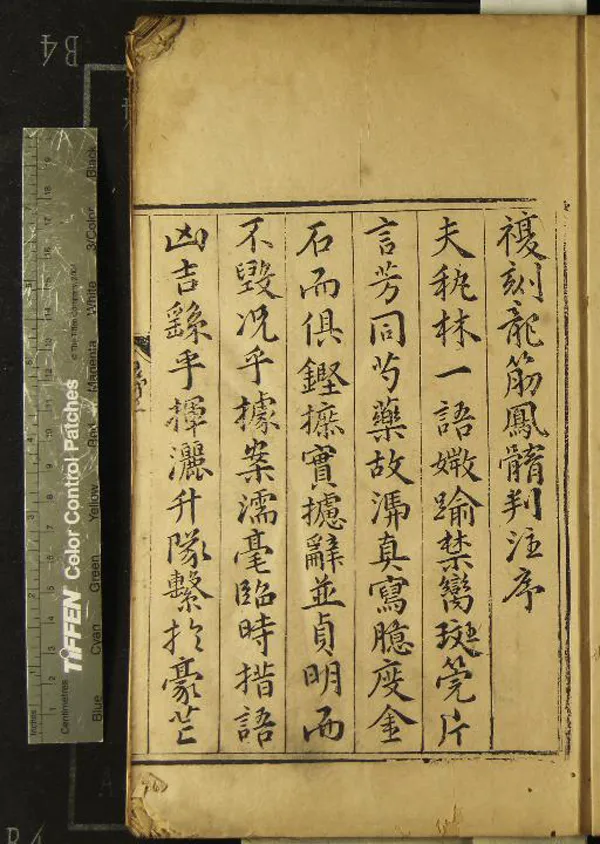 複刻龍筋鳳髓判注序
夫秇林一語媺踰禁臠斑筦片
言芳同芍藥故漰真寫臆度金
石而俱鏗摭實攄辭並貞明而
不毀况乎據案濡毫臨時措語
凶吉繇乎揮灑升隊繫於豪芒
B4
TIFFEN Color Control Patches
© The Tiffen Company, 2007
Blue Cyan Green Yellow Red Magenta White 3/Color Black
Inches
Centimetres